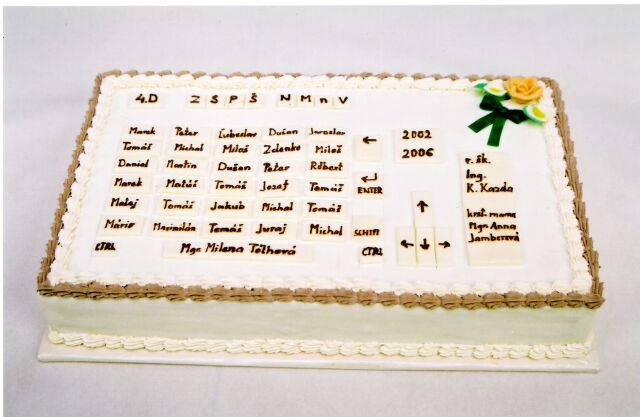 4.D Z S P Š N M n V
Marek Peter Ľuboslav Dušan Jaroslav
Tomáš Michal Miloš Zdenko Miloš
Daniel Martin Dušan Peter Róbert
Marek Matúš Tomáš Jozef Tomáš
Matej Tomáš Jakub Michal Tomáš
Mário Maximilián Tomáš Juraj Michal
CTRL Mgr. Milena Tóthová
←
↵
ENTER
SCHIFT
CTRL
2002
2006
↑
← ↓ →
r. šk.
Ing.
K. Kazda
krst. mama
Mgr. Anna
Jamborová